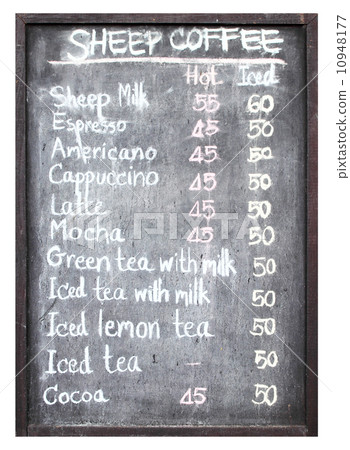 SHEEP COFFEE
Hot Iced
Sheep Milk 55 60
Espresso 45 50
Americano 45 50
Cappuccino 45 50
Latte 45 50
Mocha 45 50
Green tea with milk 50
Iced tea with milk 50
Iced lemon tea 50
Iced tea - 50
Cocoa 45 50
PIXTA
10948177